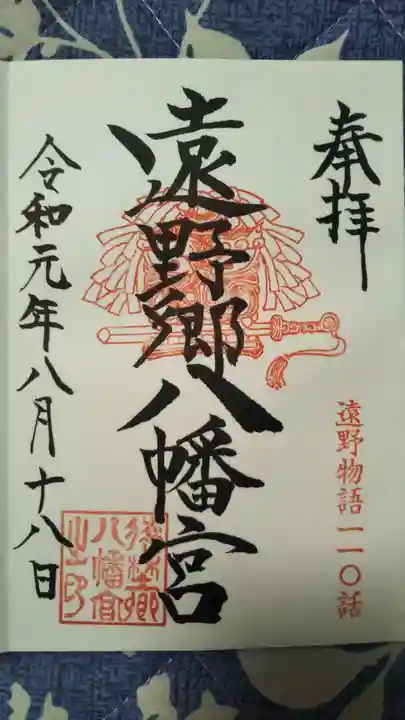 奉拝
遠野物語一一〇話
遠野郷八幡宮
令和元年八月十八日
遠野郷
八幡宮
之印